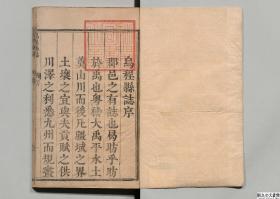 烏程縣誌序
郡邑之有誌也易昉乎昉
於禹也粤稽大禹平水土
奠山川而後凡疆域之界
土壤之宜與夫貢賦之供
川澤之利悉九州而規畫